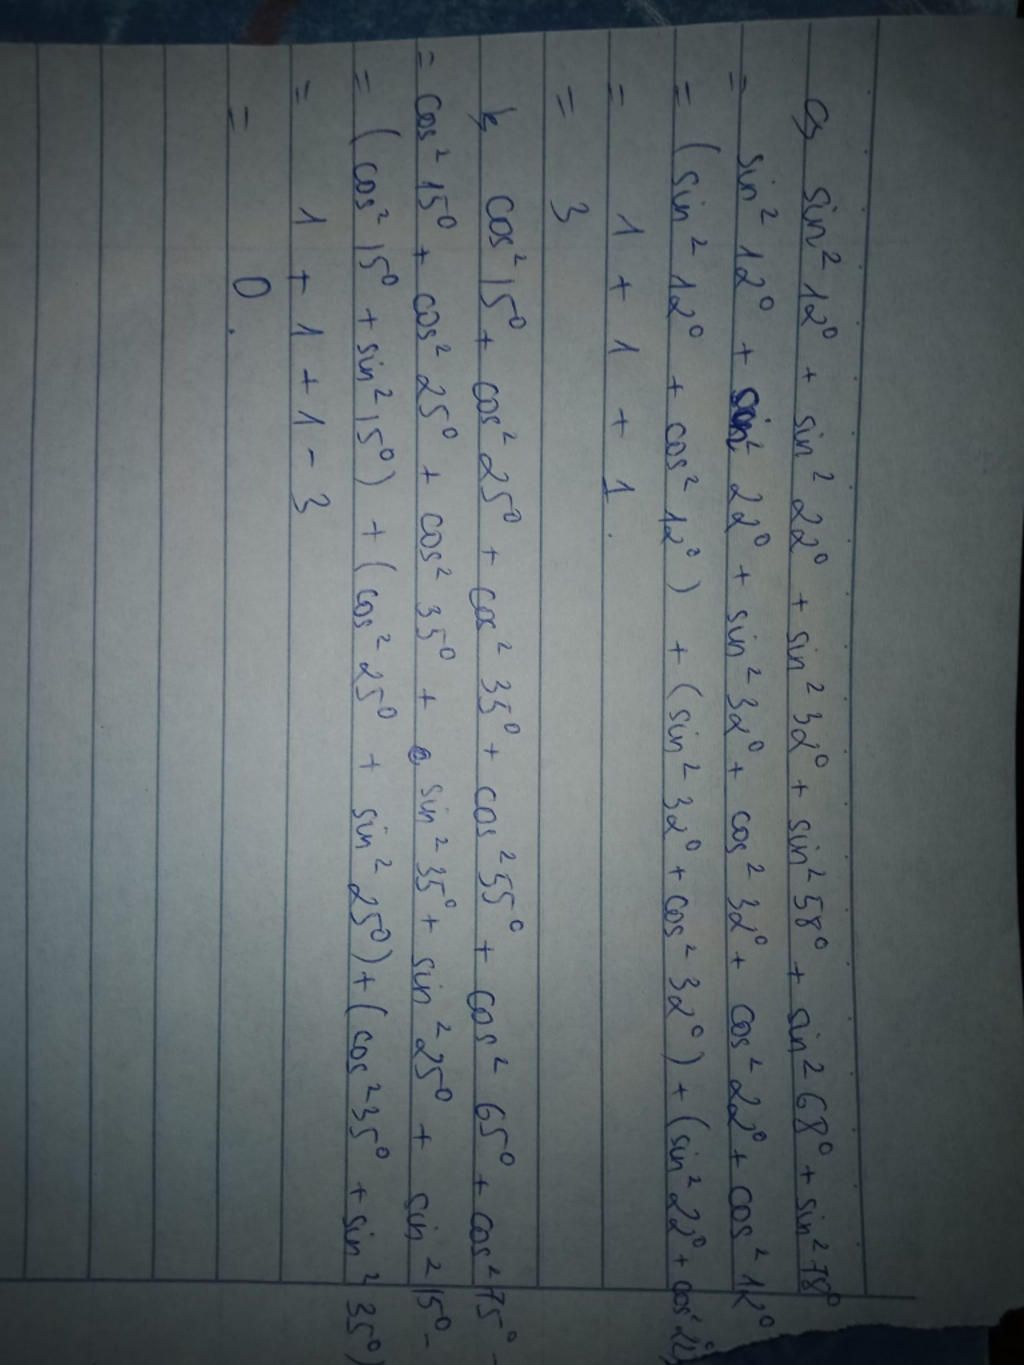 a, sin² 12⁰ + sin² 22⁰ + sin² 32⁰ + sin² 58⁰ + sin² 68⁰ + sin² 78⁰
= sin² 12⁰ + sin² 22⁰ + sin² 32⁰ + cos² 32⁰ + cos² 22⁰ + cos² 12⁰
= (sin² 12⁰ + cos² 12⁰) + (sin² 32⁰ + cos² 32⁰) + (sin² 22⁰ + cos² 22⁰)
= 1 + 1 + 1.
= 3
b, cos² 15⁰ + cos² 25⁰ + cos² 35⁰ + cos² 55⁰ + cos² 65⁰ + cos² 75⁰ -
= cos² 15⁰ + cos² 25⁰ + cos² 35⁰ + sin² 35⁰ + sin² 25⁰ + sin² 15⁰ -
= (cos² 15⁰ + sin² 15⁰) + (cos² 25⁰ + sin² 25⁰) + (cos² 35⁰ + sin² 35⁰)
= 1 + 1 + 1 - 3
= 0.